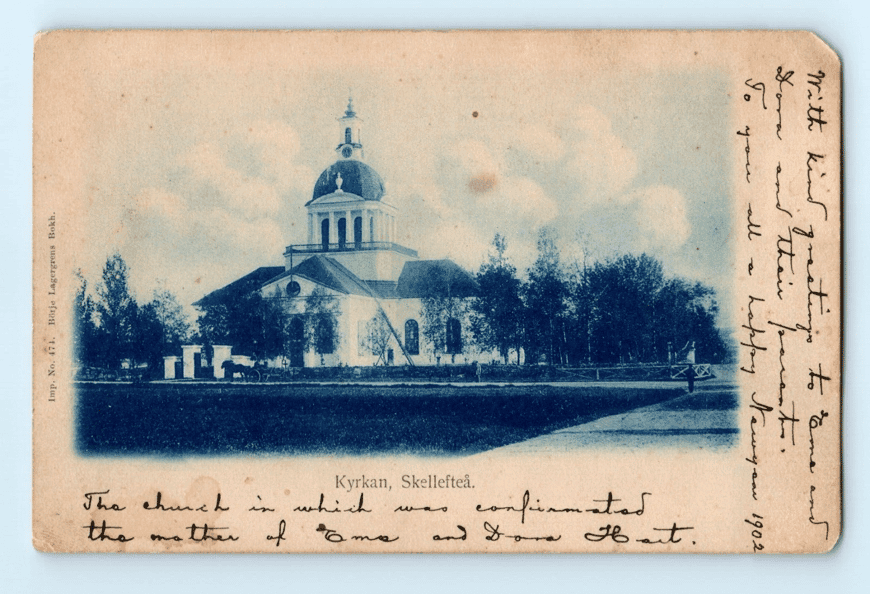 Imp. No. 474. Börje Lagergrens Bokh.
Kyrkan, Skellefteå.
The church in which was confirmated
the mother of Ema and Dora Hart.
With kind greetings to Ema and
Dora and their parents.
To you all a happy Newyar 1902